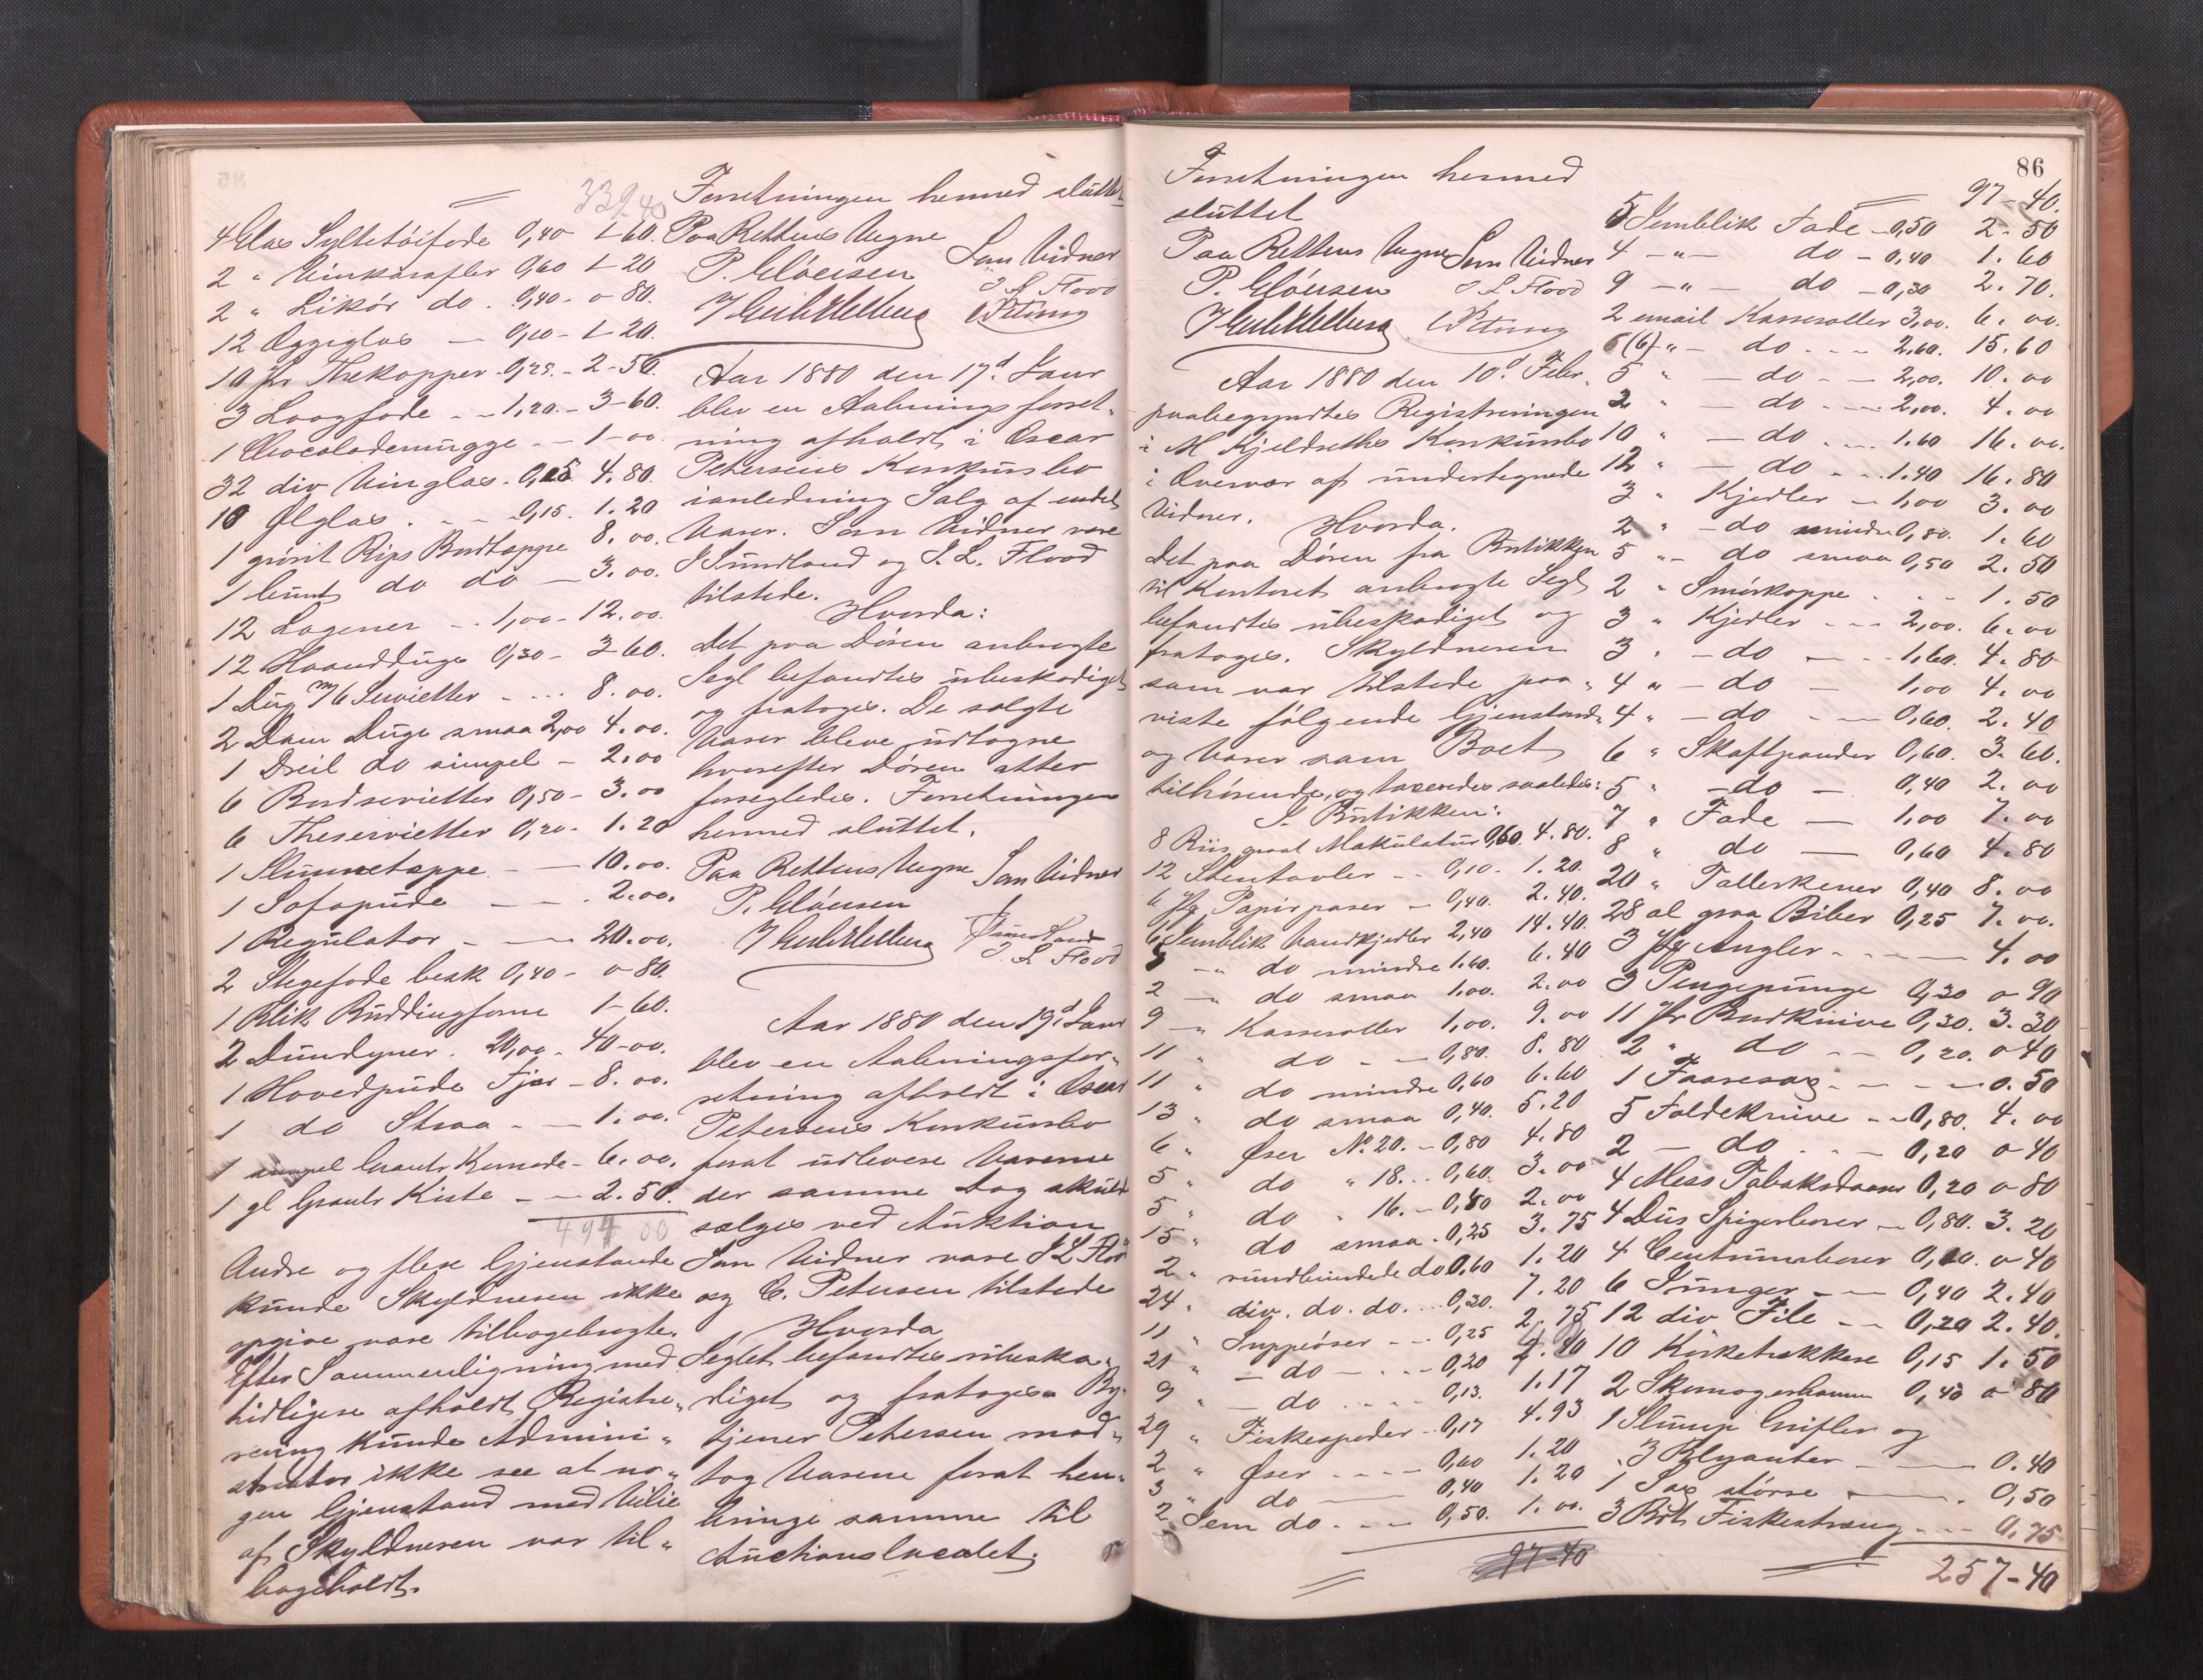 339.40
4 Glas Syltetöifade 0,40 1-60.
2 " Vinkarafler 0,60 1-20
2 " Likör do. 0,40 - 0 80.
12 Eggiglas — 0,10 - 1-20.
10 pr Thekopper 0,25 - 2-50.
3 Laagfade - - 1,20 - 3-60.
1 Chocolademugge - - 1-00.
32 div Vinglas. 0,15 4.80.
10 Ølglas . - - 0,15. 1.20
1 grönt Rips Bordtæppe 8.00.
1 bunt do do — 3.00.
12 Lagener - - 1,00 - 12.00.
12 Haandduge 0,30 - 3-60.
1 Dug m/6 Servietter - - - 8.00.
2 Dam Duge smaa 2,00 4.00.
1 Dreil do simpel - 2.00
6 Bordservietter 0,50 - 3.00
6 Theservietter 0,20 - 1.20
1 Slumretæppe - — 10.00.
1 Sofapude - — - 2.00.
1 Regulator - — 20.00.
2 Stegefade besk 0,40 - 0 80.
1 Blik Buddingform 1-60.
2 Dundyner. 20,00 - 40-00.
1 Hovedpude Fjær - 8.00.
1 do Straa - — 1.00.
1 simpel Grants Komode - 6.00.
1 gl Grants Kiste - - 2.50.
494 00
Andre og flere Gjenstande
kunde Skyldneren ikke
opgive være tilbagebragte.
Efter Sammenligning med
tidligere afholdt Registre-
rering kunde Admini-
strator ikke see at no-
gen Gjenstand med Vilie
af Skyldneren var til-
bageholdt.
Forretningen hermed sluttet
Paa Rettens Vegne
Som Vidner
P. Clausen
J L Flood
Aar 1880 den 17d Janr
blev en Aabningsforret-
ning afholdt i Oscar
Petersens Konkursbo
ianledning Salg af endel
Varer. Som Vidner vare
J Sundland og J. L. Flood
tilstede.
Hvorda:
Det paa Døren anbragte
Segl befandtes ubeskadiget
og fratoges. De solgte
Varer bleve udtagne
hvorefter Døren atter
forsegledes. Forretningen
hermed sluttet.
Paa Rettens Vegne
Som Vidner
P. Clausen
J. L Flood
Aar 1880 den 19d Janr
blev en Aabningsfor-
retning afholdt i Oscar
Petersens Konkursbo
forat udlevere Varerne
der samme Dag skulde
sælges ved Auktion
Som Vidner vare J L Flood
og C. Petersen tilstede
Hvorda
Seglet befandtes ubeska-
diget og fratoges. By-
tjener Petersen mod-
tog Varerne forat hen-
bringe samme til
Auctionslocalet.
86
Forretningen hermed
sluttet
Paa Rettens Vegne
Som Vidner
P. Clausen
J L Flood
Aar 1880 den 10d Febr.
paabegyndtes Registreringen
i M Kjeldseths Konkursbo
i Overvær af undertegnede
Vidner.
Hvorda.
Det paa Døren fra Butikken
til Kontoret anbragte Segl
befandtes ubeskadiget og
fratoges. Skyldneren
som var tilstede paa-
viste følgende Gjenstande
og Varer som Boet
tilhørende, og taxeredes saaledes:
I Butikken:
8 Riis graat Makulatur 0,60. 4.80.
12 Stentavler - - 0,10. 1.20.
6 Pk Papirposer — 0,40. 2.40.
6 Jernblik Vandkjedler 2,40 14.40.
4 — " do mindre 1.60. 6.40
2 — " do smaa 1.00. 2.00
9 — " Kasseroller 1,00. 9.00
11 " do - - 0,80. 8.80
11 " do mindre 0,60 6.60
13 " do smaa 0,40. 5.20
6 " Øser No 20. - 0,80 4.80
5 " do " 18. .. 0,60. 3.00
5 " do " 16. - 0,40 2.00
15 " do smaa . 0,25 3.75
2 " rundbundede do 0.60 1.20
24 " div. do. do. .. 0,30. 7.20
11 " Suppeöser - - 0,25 2.75
21 " — do — . - - 0,20 4.20
9 " — do . . . . 0,13. 1.17
29 " Fiskespader - 0,17 4.93
2 " Øser - - - - 0,60 1.20
3 " do — 0,40 1.20
2 Jern do. - - 0,50. 1.00.
97-40
97-40.
5 Jernblik Fade - 0,50 2.50
4 — " — do - 0,40 1.60
9 — " — do - 0,30 2.70.
2 email Kasseroller 3,00. 6.00.
6 (6) " — do . - - 2.60. 15.60
5 " — do - — 2,00. 10.00
2 " — do . - — 2,00. 4.00
10 " — do . . — 1.60 16.00.
12 " — do . . - 1.40 16.80
3 " Kjedler — 1,00 3.00
2 " — do mindre 0,80. 1.60
5 " — do smaa 0,50 2.50
2 " Smörkoppe . . - 1.50
3 " Kjedler - - - 2,00. 6.00
3 " — do — - - 1,60. 4.80
4 " — do — 1,00 4.00
4 " — do - — 0,60. 2.40
6 " Skaftpander 0,60. 3.60.
5 " — do — 0,40 2.00
7 " Fade — 1,00 7.00
8 " do — 0,60 4.80
20 " Tallerkener 0,40 8.00
28 al graa Biber 0,25 7.00.
3 Pk Angler - - - — 4.00
3 Pengepunge 0,30 0 90
11 pr Bordknive 0,30. 3.30
2 " do - - 0,20. 0 40
1 Faaresax - - - — 0.50
5 Foldeknive - - 0,80. 4.00
2 — do . . - 0,20 0 40
4 Mess Tobaksdaaser 0,20 0 80
4 Dus Spigerborer - 0,80. 3.20
4 Centrumsborer 0,10. 0 40
6 Tunger - — 0,40 2.40
12 div File - - 0,20 2.40.
10 Korketrækkere 0,15 1.50
2 Skomagerhamre 0,40 0 80
1 Slump Grifler og
3 Blyanter — 0.40
1 Sax større — . 0,50
3 Bdt Fiskestræng - - - 0.75
257-40